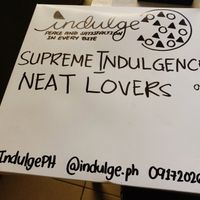 indulge
PEACE AND SATISFACTION
IN EVERY BITE
SUPREME INDULGENC
NEAT LOVERS
IndulgePH @indulge.ph 09172020